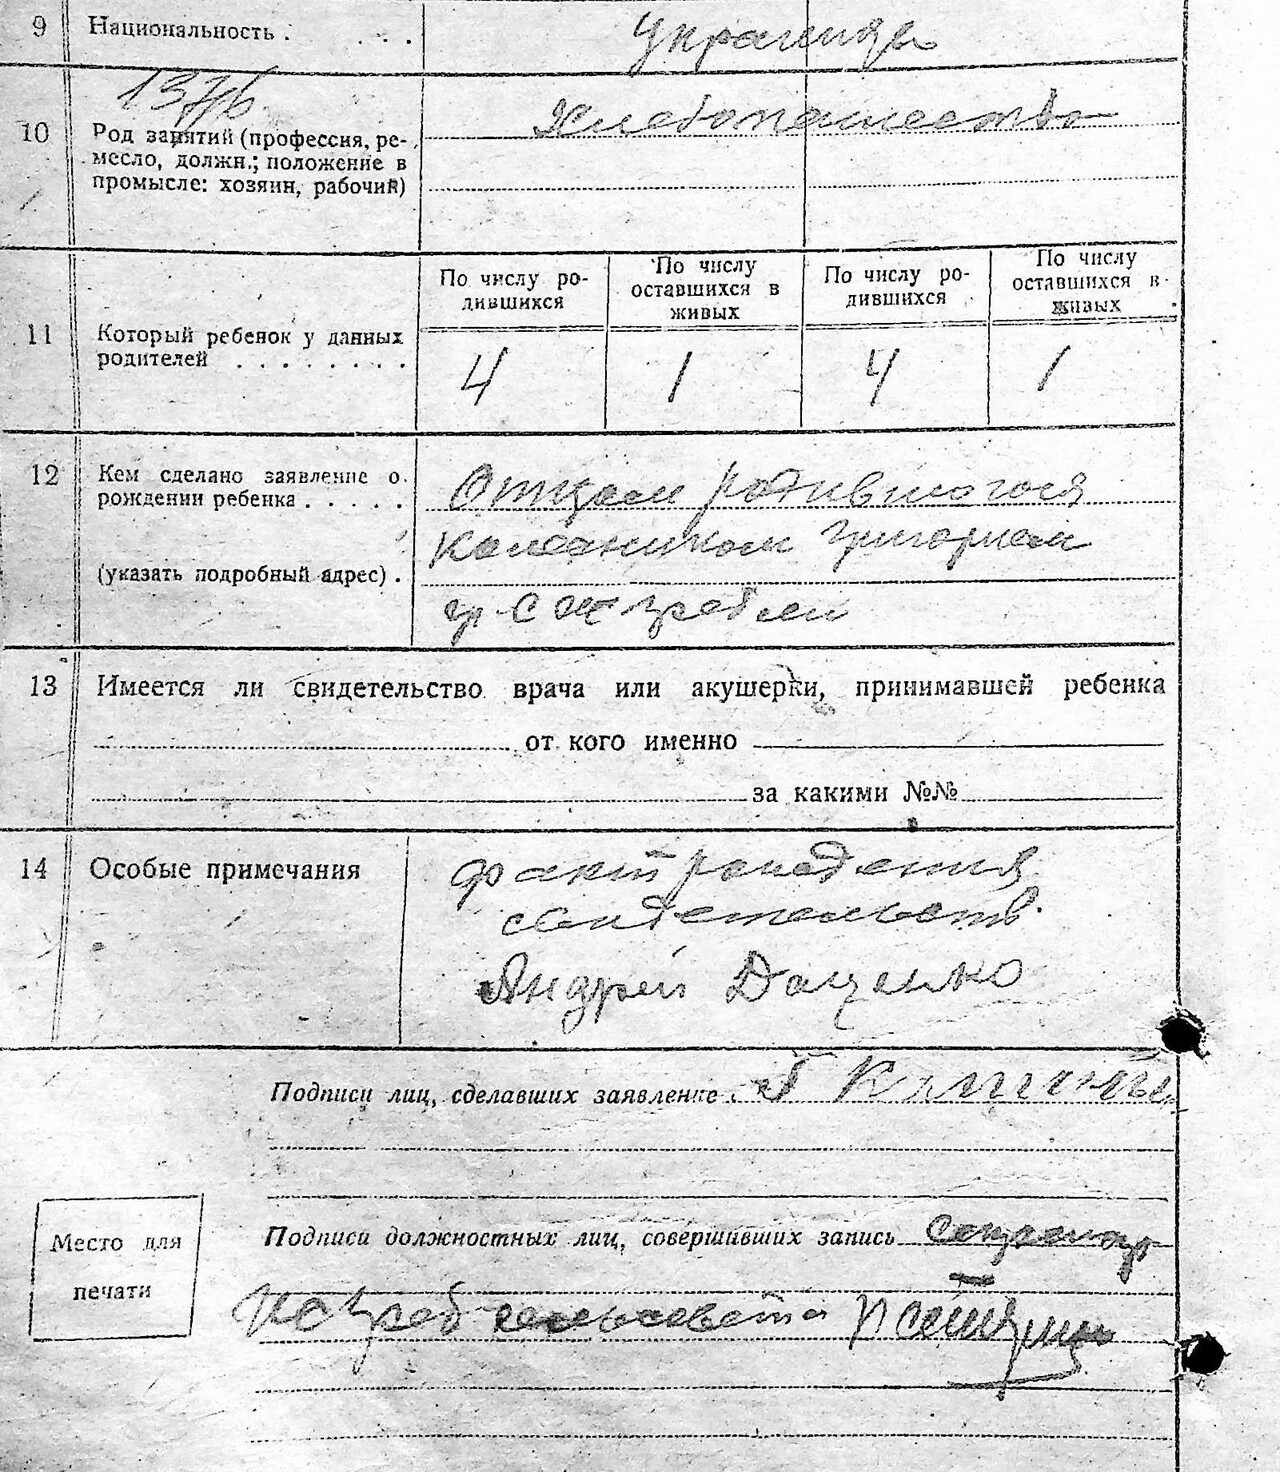 9 Национальность . . . . Украинцы
137/6
10 Род занятий (профессия, ре-
месло, должн.; положение в
промысле: хозяин, рабочий)
Хлебопашество
11 Который ребенок у данных
родителей . . . . . . . .
По числу ро-
дившихся
По числу
оставшихся в
живых
По числу ро-
дившихся
По числу
оставшихся в
живых
4 1 4 1
12 Кем сделано заявление о
рождении ребенка . . . . .
(указать подробный адрес) .
Отцом родившогося
Григорием
гр. С
13 Имеется ли свидетельство врача или акушерки, принимавшей ребенка
от кого именно
за какими №№
14 Особые примечания
факт рождения
свидетельств.
Андрей Даценко
Подписи лиц, сделавших заявление .
Подписи должностных лиц, совершивших запись секретарь
сельсовета
Место для
печати